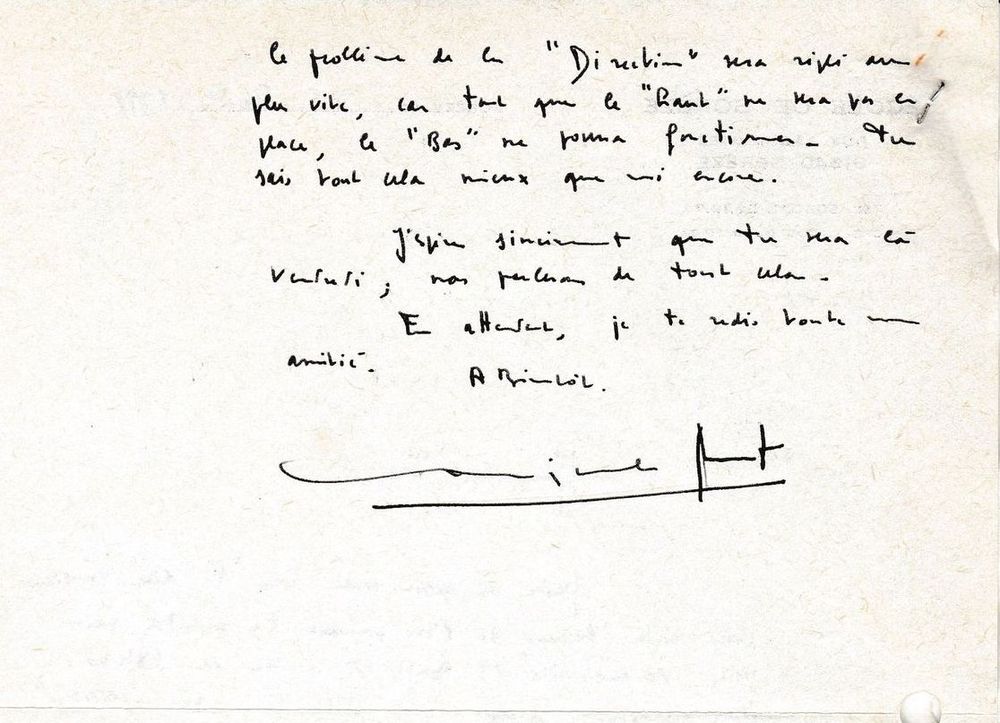 le problème de la "Direction" sera réglé au
plus vite, car tant que le "Haut" ne sera pas en
place, le "Bas" ne pourra fonctionner. Tu
sais tout cela mieux que moi encore.
J'espère sincèrement que tu seras là
vendredi ; nous parlerons de tout cela.
En attendant, je te redis toute mon
amitié.
A Bientôt.